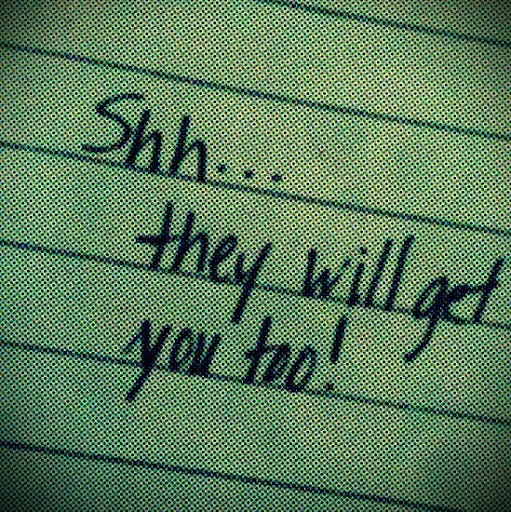 Shh...
they will get
you too!